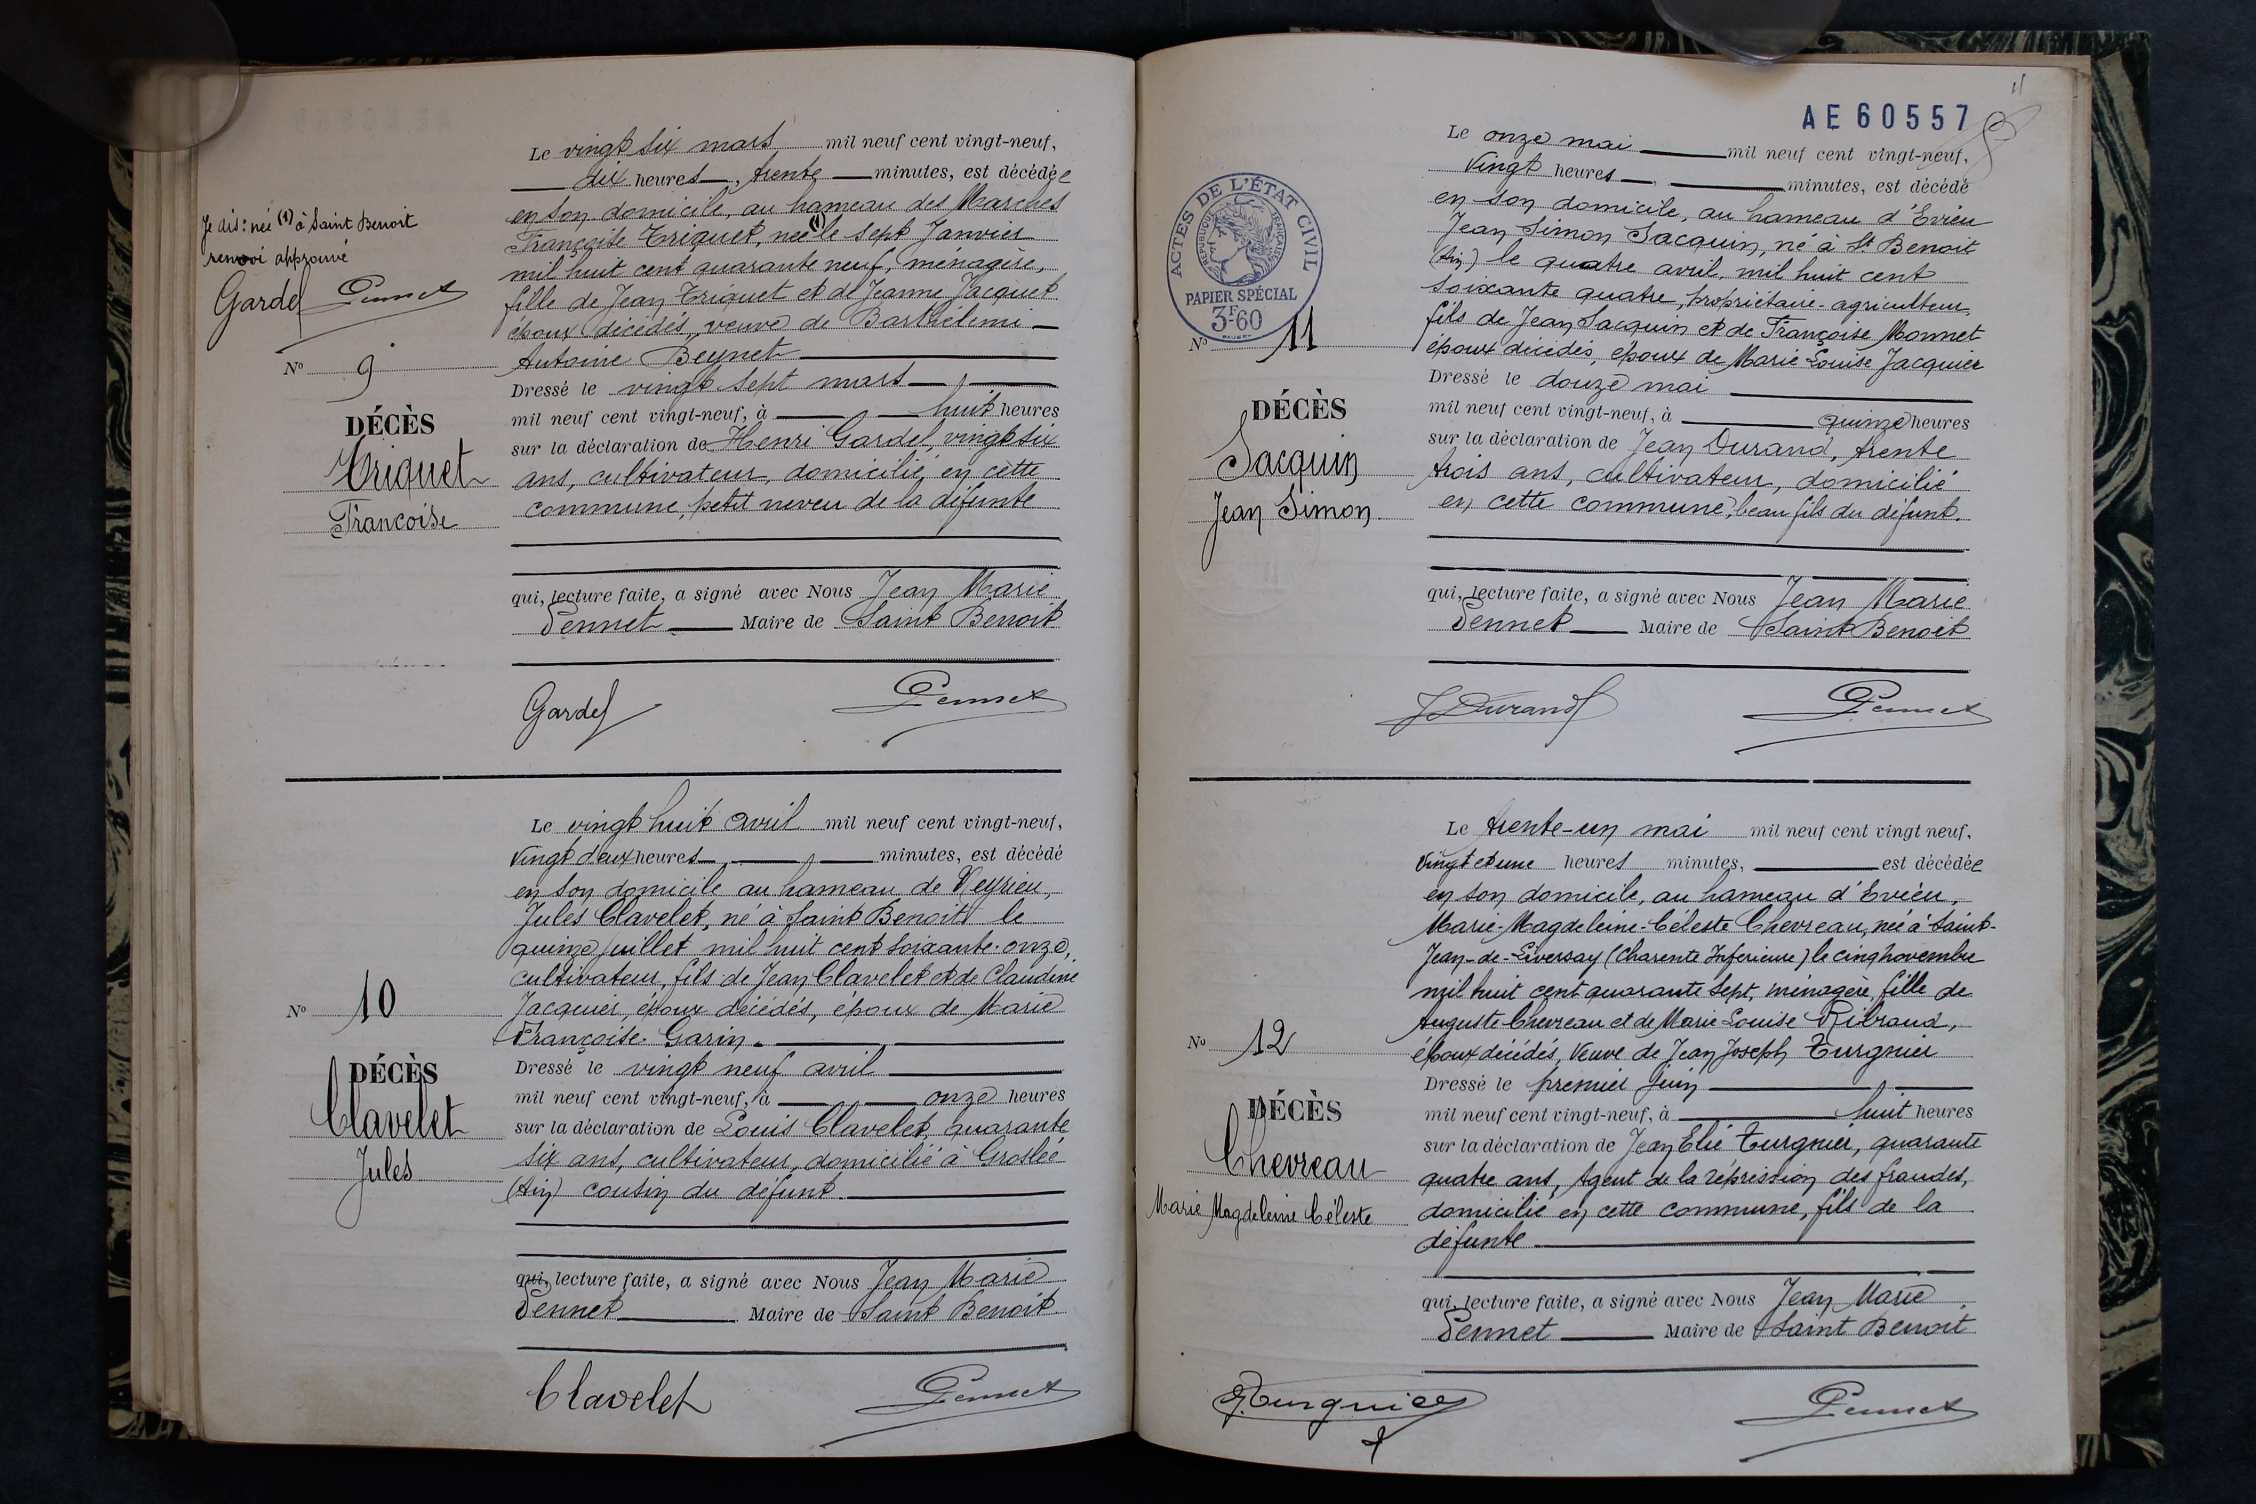 Le vingt six mars mil neuf cent vingt-neuf,
dix heures, trente minutes, est décédée
en son domicile, au hameau des Marches
Françoise Triquet, née (1) le sept Janvier
mil huit cent quarante neuf, ménagère,
fille de Jean Triquet et de Jeanne Jacquet
époux décédés, veuve de Barthélemi
Antoine Beynet
Dressé le vingt sept mars
mil neuf cent vingt-neuf, à huit heures
sur la déclaration de Henri Gardel, vingt six
ans, cultivateur, domicilié en cette
commune, petit neveu de la défunte
qui, lecture faite, a signé avec Nous Jean Marie
Pennet Maire de Saint Benoit
Gardel Pennet
Je dis: née (1) à Saint Benoit
renvoi approuvé
Gardel Pennet
No 9
DÉCÈS
Triquet
Françoise
Le vingt huit avril mil neuf cent vingt-neuf,
vingt deux heures, minutes, est décédé
en son domicile au hameau de Veyrieu,
Jules Clavelet, né à Saint Benoit le
quinze juillet mil huit cent soixante-onze,
cultivateur, fils de Jean Clavelet et de Claudine
Jacquier, époux décédés, époux de Marie
Françoise Garin.
Dressé le vingt neuf avril
mil neuf cent vingt-neuf, à onze heures
sur la déclaration de Louis Clavelet, quarante
six ans, cultivateur, domicilié à Groslée
(Ain) cousin du défunt
qui, lecture faite, a signé avec Nous Jean Marie
Pennet Maire de Saint Benoit
Clavelet Pennet
No 10
DÉCÈS
Clavelet
Jules
11
AE 60557
ACTES DE L'ÉTAT CIVIL
RÉPUBLIQUE FRANÇAISE
PAPIER SPÉCIAL
3F60
Le onze mai mil neuf cent vingt-neuf,
vingt heures minutes, est décédé
en son domicile, au hameau d'Evieu
Jean Simon Sacquin, né à St Benoit
(Ain) le quatre avril, mil huit cent
soixante quatre, propriétaire-agriculteur,
fils de Jean Sacquin et de Françoise Monnet
époux décédés, époux de Marie Louise Jacquier
Dressé le douze mai
mil neuf cent vingt-neuf, à quinze heures
sur la déclaration de Jean Durand, trente
trois ans, cultivateur, domicilié
en cette commune, beau fils du défunt.
qui, lecture faite, a signé avec Nous Jean Marie
Pennet Maire de Saint Benoit
J Durand Pennet
No 11
DÉCÈS
Sacquin
Jean Simon
Le trente-un mai mil neuf cent vingt neuf,
vingt et une heures minutes, est décédée
en son domicile, au hameau d'Evieu,
Marie-Magdeleine-Céleste Chevreau, née à Saint-
Jean-de-Liversay (Charente Inférieure) le cinq novembre
mil huit cent quarante sept, ménagère, fille de
Auguste Chevreau et de Marie Louise Ribraud,
époux décédés, veuve de Jean Joseph Turgnier
Dressé le premier juin
mil neuf cent vingt-neuf, à huit heures
sur la déclaration de Jean Elie Turgnier, quarante
quatre ans, Agent de la répression des fraudes,
domicilié en cette commune, fils de la
défunte
qui, lecture faite, a signé avec Nous Jean Marie
Pennet Maire de Saint Benoit
Turgnier Pennet
No 12
DÉCÈS
Chevreau
Marie Magdeleine Céleste